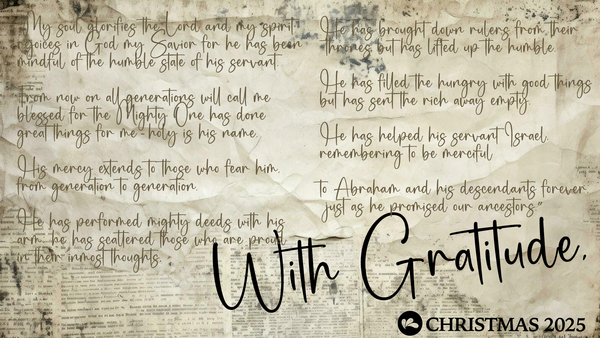 "My soul glorifies the Lord and my spirit
rejoices in God my Savior, for he has been
mindful of the humble state of his servant.
From now on all generations will call me
blessed for the Mighty One has done
great things for me-holy is his name.
His mercy extends to those who fear him,
from generation to generation.
He has performed mighty deeds with his
arm; he has scattered those who are proud
in their inmost thoughts.
He has brought down rulers from their
thrones but has lifted up the humble.
He has filled the hungry with good things
but has sent the rich away empty.
He has helped his servant Israel,
remembering to be merciful
to Abraham and his descendants forever,
just as he promised our ancestors."
With Gratitude,
CHRISTMAS 2025